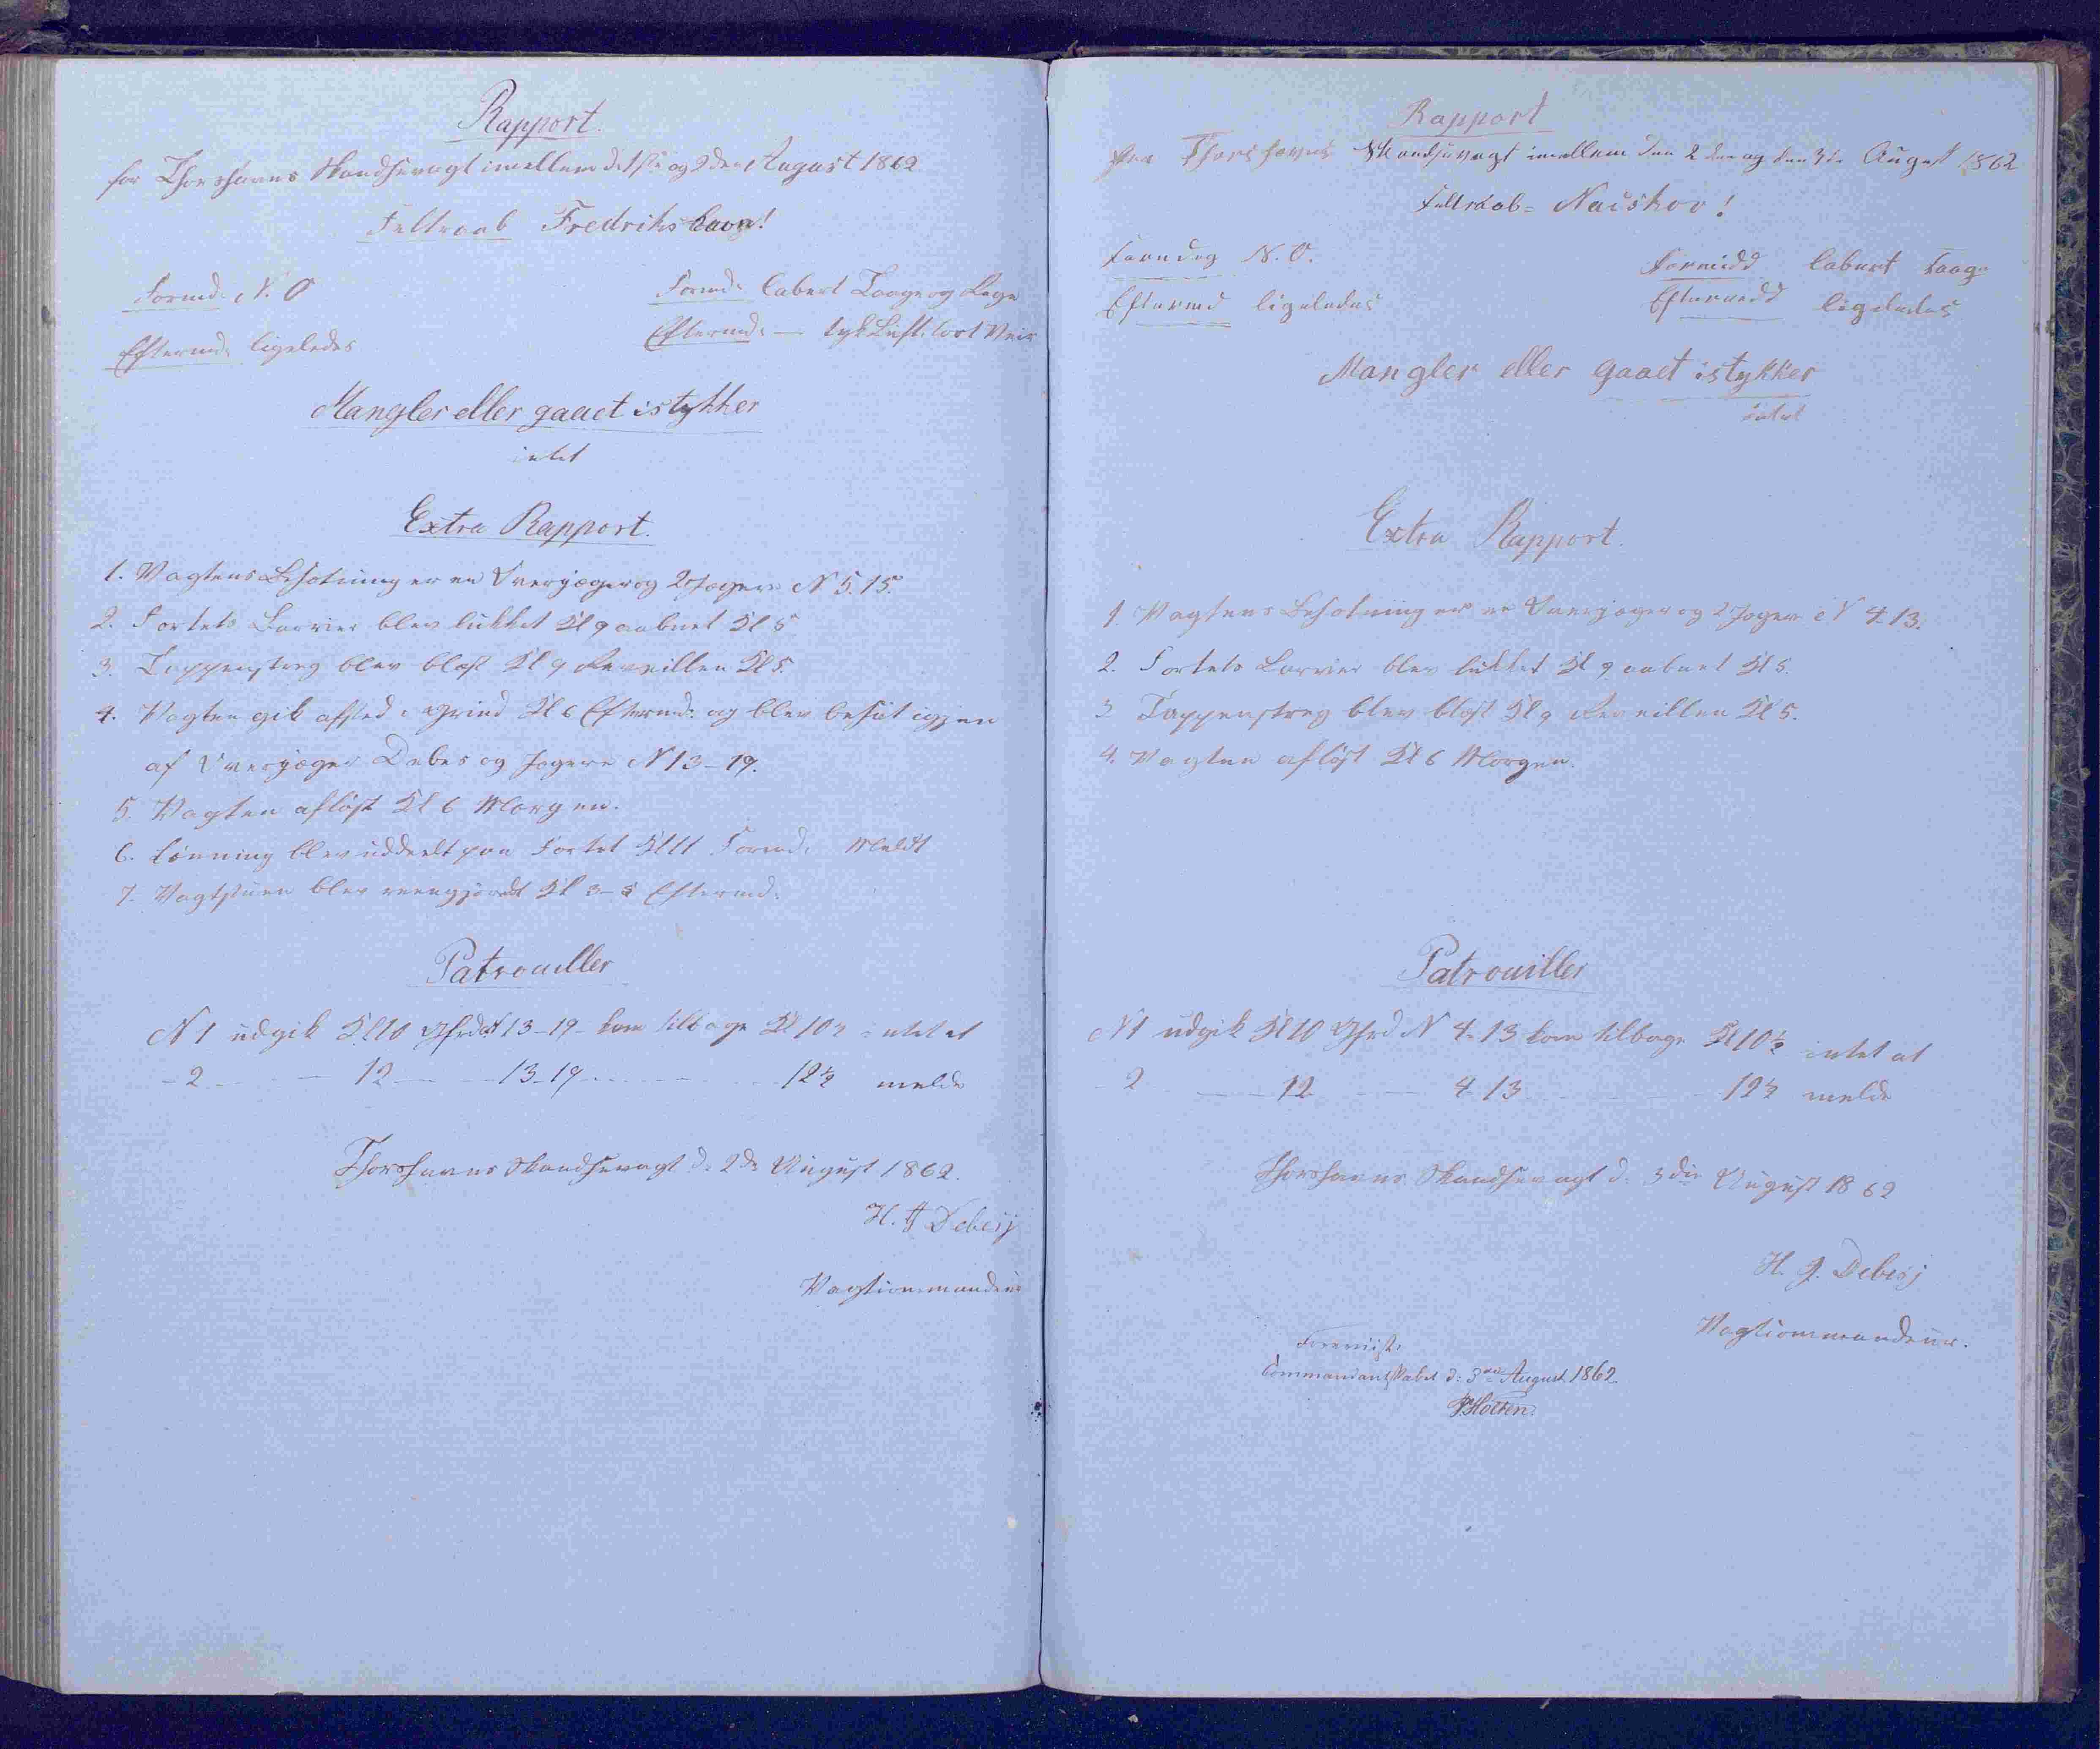 Rapport.
for Thorshavns Skandsevagt imellem d. 1ste og 2den August 1862
Feltraab Fredrikshavn!
Formd. N. O
Formd. Labert Taage og Regn
Eftermd. ligeledes
Eftermd. — tyk Luft. tort Veir
Mangler eller gaaet istykker
intet
Extra Rapport.
1. Vagtens Besætning er en Overjæger og 2 Jægere N 5. 15.
2. Fortets Barrier blev lukket Kl 9 aabnet Kl 5
3. Tappenstreg blev blæst Kl 9 Reveillen Kl 5.
4. Vagten gik afsted i Grind Kl 6 Eftermd. og blev besat igjen
af Overjæger Debes og Jægere N 13-19.
5. Vagten afløst Kl 6 Morgen.
6. Lønning blev uddeelt paa Fortet Kl 11 Formd. Meldt
7. Vagtstuen blev reengjordt Kl 3-5 Eftermd.
Patrouiller
N 1 udgik Kl 10 Gfrd N 13-19- kom tilbage Kl 10½ intet at
- 2 - - 12 - - 13-19 - - - 12½ melde
Thorshavns Skandsevagt d. 2de August 1862.
H. J Debesj
Vagtcommandeur
Rapport
fra Thorshavns Skandsevagt imellem den 2den og den 3die August 1862
Feltraab = Nauskov!
Formdag N. O.
Formidd Labert Taage
Eftermd ligeledes
Eftermidd ligeledes
Mangler eller gaaet istykker
intet
Extra Rapport.
1. Vagtens Besætning er en Overjæger og 2 Jæger N 4. 13.
2. Fortets Barrier blev lukket Kl 9 aabnet Kl 5.
3 Tappenstreg blev blæst Kl 9 Reveillen Kl 5.
4. Vagten afløst Kl 6 Morgen.
Patrouiller
N 1 udgik Kl 10 Gfrd N 4-13 kom tilbage Kl 10½ intet at
2 - - 12 - - 4 13 - - - 12½ melde
Thorshavns Skandsevagt d. 3die August 1862
H. J. Debesj
Vagtcommandeur.
Foreviist.
Commandantskabet d: 3die August 1862